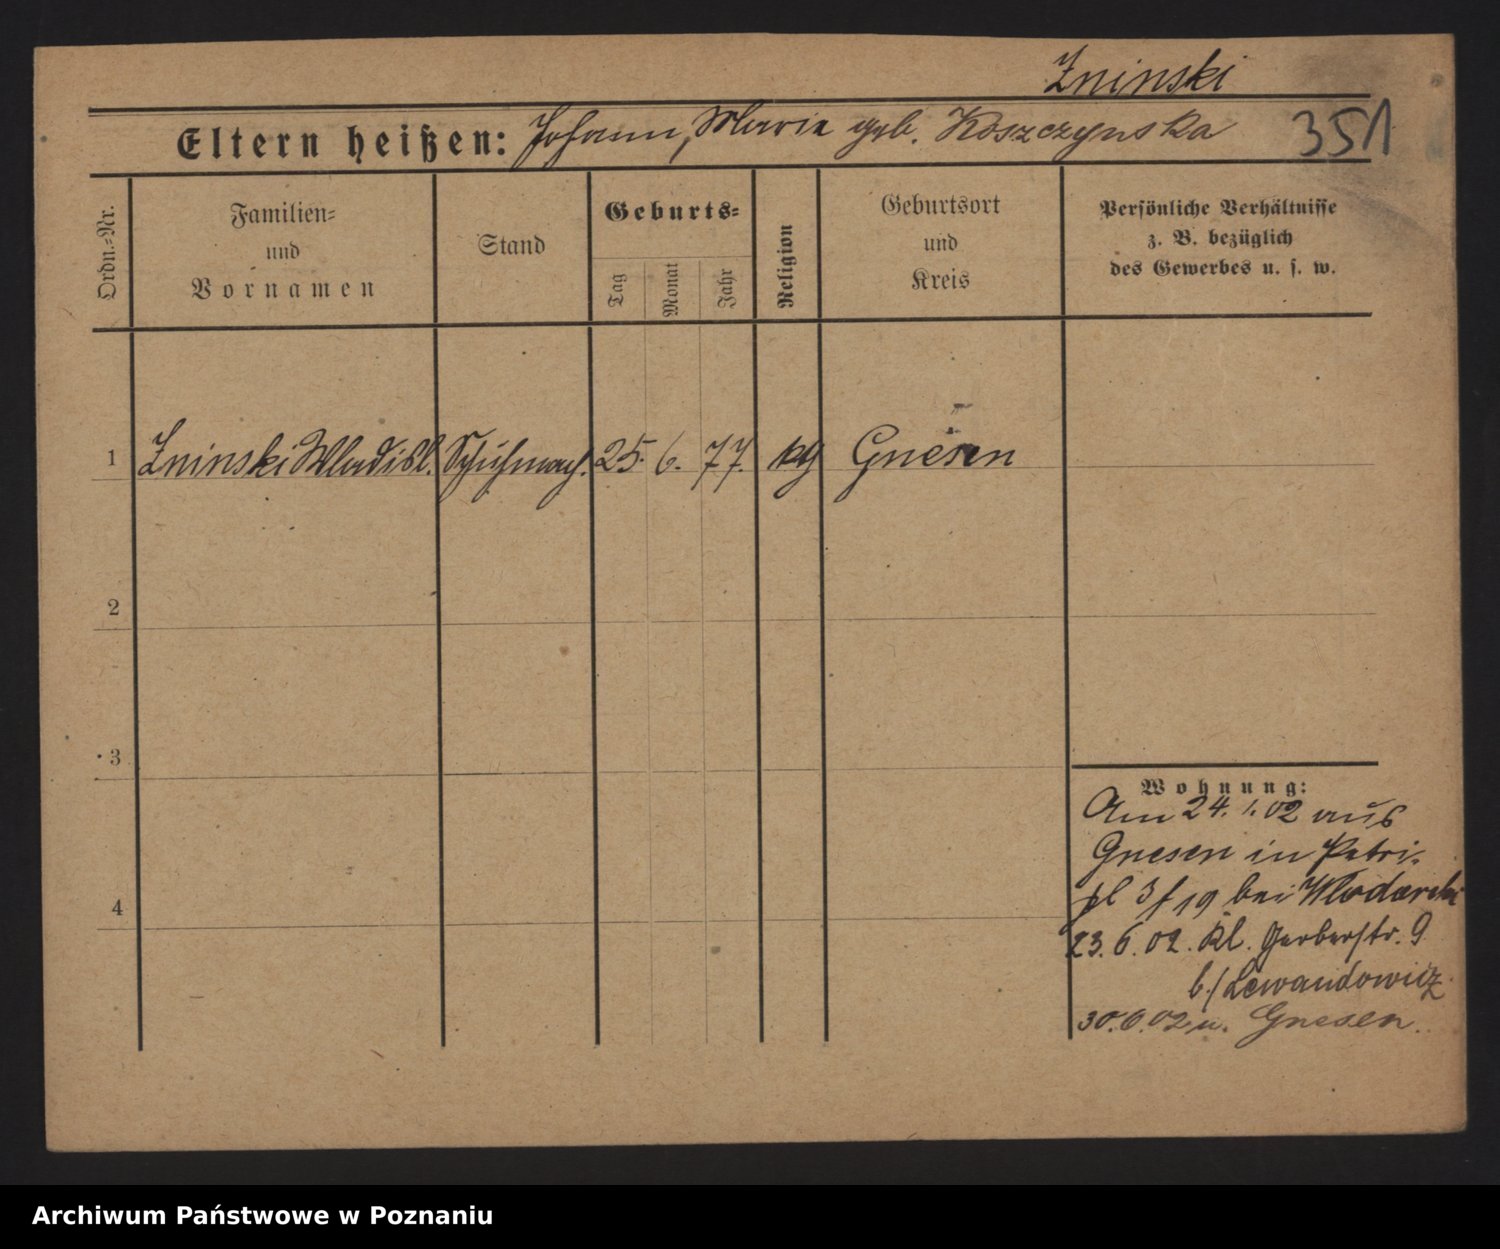 Zninski
Eltern heißen: Johann, Maria geb. Koszczynska 351
Ordn.-Nr.
Familien-
und
Vornamen
Stand
Geburts-
Tag
Monat
Jahr
Religion
Geburtsort
und
Kreis
Persönliche Verhältnisse
z. B. bezüglich
des Gewerbes u. s. w.
1 Zninski Wladisl. Schuhmach. 25. 6. 77. kg Gnesen
2
3
4
Wohnung:
Am 24. 1. 02 aus
Gnesen in Petri-
pl 3 f 19 bei Wlodarski
23. 6. 02. Kl. Gerberstr. 9
b./ Lewandowicz
30. 6. 02 n. Gnesen.
Archiwum Państwowe w Poznaniu